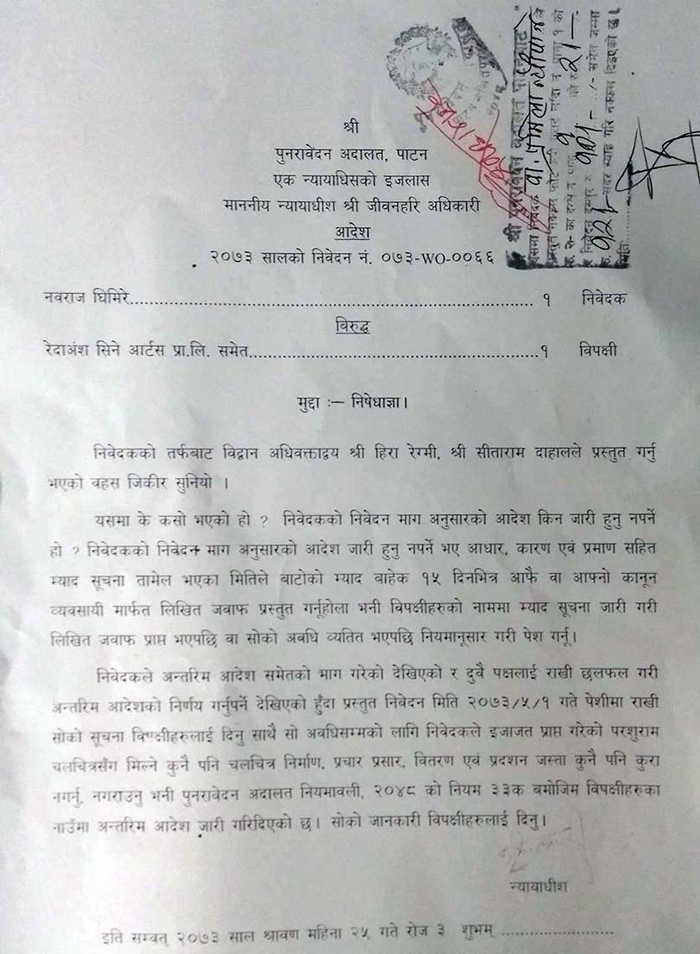 श्री
पुनरावेदन अदालत, पाटन
एक न्यायाधिसको इजलास
माननीय न्यायाधीश श्री जीवनहरि अधिकारी
आदेश
२०७३ सालको निवेदन नं. ०७३-WO-००६६
नवराज घिमिरे........................................................................ १ निवेदक
विरुद्ध
रेदाअंश सिने आर्टस प्रा.लि. समेत....................................................१ विपक्षी
मुद्दा :— निषेधाज्ञा।
निवेदकको तर्फबाट विद्वान अधिवक्ताद्वय श्री हिरा रेग्मी, श्री सीताराम दाहालले प्रस्तुत गर्नु
भएको वहस जिकीर सुनियो ।
यसमा के कसो भएको हो ? निवेदकको निवेदन माग अनुसारको आदेश किन जारी हुनु नपर्ने
हो ? निवेदकको निवेदन माग अनुसारको आदेश जारी हुनु नपर्ने भए आधार, कारण एवं प्रमाण सहित
म्याद सूचना तामेल भएका मितिले बाटोको म्याद बाहेक १५ दिनभित्र आफै वा आफ्नो कानून
व्यवसायी मार्फत लिखित जवाफ प्रस्तुत गर्नूहोला भनी विपक्षीहरुको नाममा म्याद सूचना जारी गरी
लिखित जवाफ प्राप्त भएपछि वा सोको अवधि व्यतित भएपछि नियमानुसार गरी पेश गर्नू।
निवेदकले अन्तरिम आदेश समेतको माग गरेको देखिएको र दुवै पक्षलाई राखी छलफल गरी
अन्तरिम आदेशको निर्णय गर्नुपर्ने देखिएको हुँदा प्रस्तुत निवेदन मिति २०७३/५/१ गते पेशीमा राखी
सोको सूचना विपक्षीहरुलाई दिनु साथै सो अवधिसम्मको लागि निवेदकले इजाजत प्राप्त गरेको परशुराम
चलचित्रसँग मिल्ने कुनै पनि चलचित्र निर्माण, प्रचार प्रसार, वितरण एवं प्रदशन जस्ता कुनै पनि कुरा
नगर्नु, नगराउनु भनी पुनरावेदन अदालत नियमावली, २०४८ को नियम ३३क बमोजिम विपक्षीहरुका
नाउँमा अन्तरिम आदेश जारी गरिदिएको छ। सोको जानकारी विपक्षीहरुलाई दिनु।
न्यायाधीश
इति सम्वत् २०७३ साल श्रावण महिना २५ गते रोज ३ शुभम् ......................